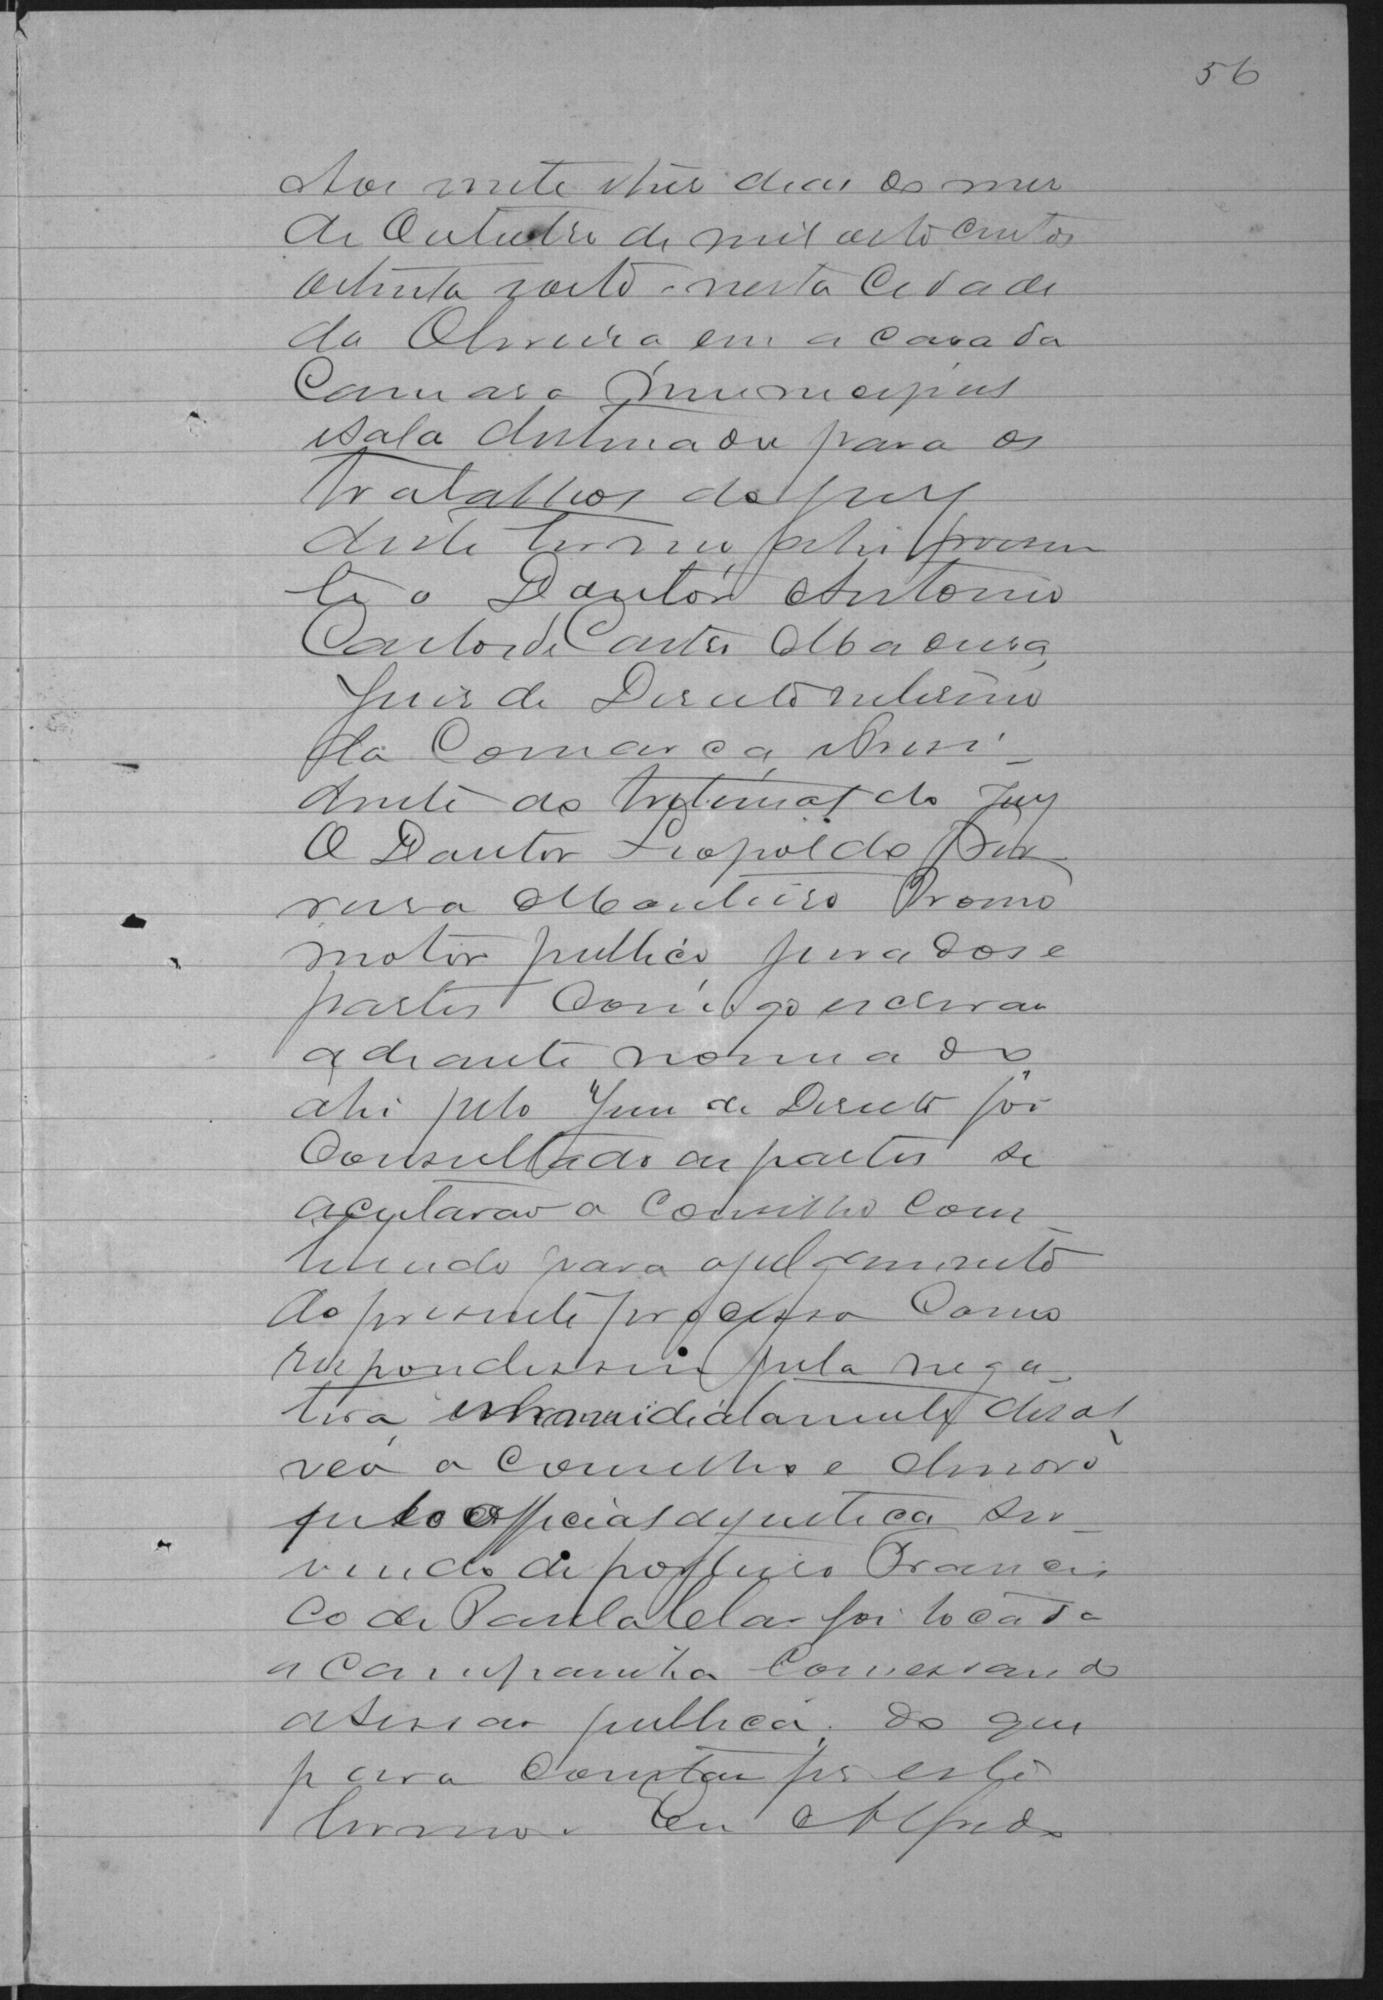 56
Aos vinte tres dias do mes
de Outubro de mil oito centos
oitenta e oito nesta Cidade
da Oliveira em a casa da
Camara Municipal
e sala destinada para os
trabalhos do jury
deste termo ahi presen
te o Doutor Antonio
Carlos de Castro Madeira
Juis de Direito interino
da Comarca, e Presi-
dente do tribunal do Jury
O Doutor Leopoldo Per
reira Monteiro Promo
motor publico jurados e
partes Comigo escrivão
adiante nomeado
ahi pelo Juis de Direito foi
Consultado as partes se
aceitavão o Conselho Com
tuindo para o julgamento
do presente processo Como
respondessem pela nega-
tiva, immidiatamente dissol
veo o Conselho e
pelo official de justica ser-
vindo de porteiro Francis
co de Paula foi tocada
a campainha Comessando
a sessão publica, do que
para Constar fis este
termo. Eu Alfredo